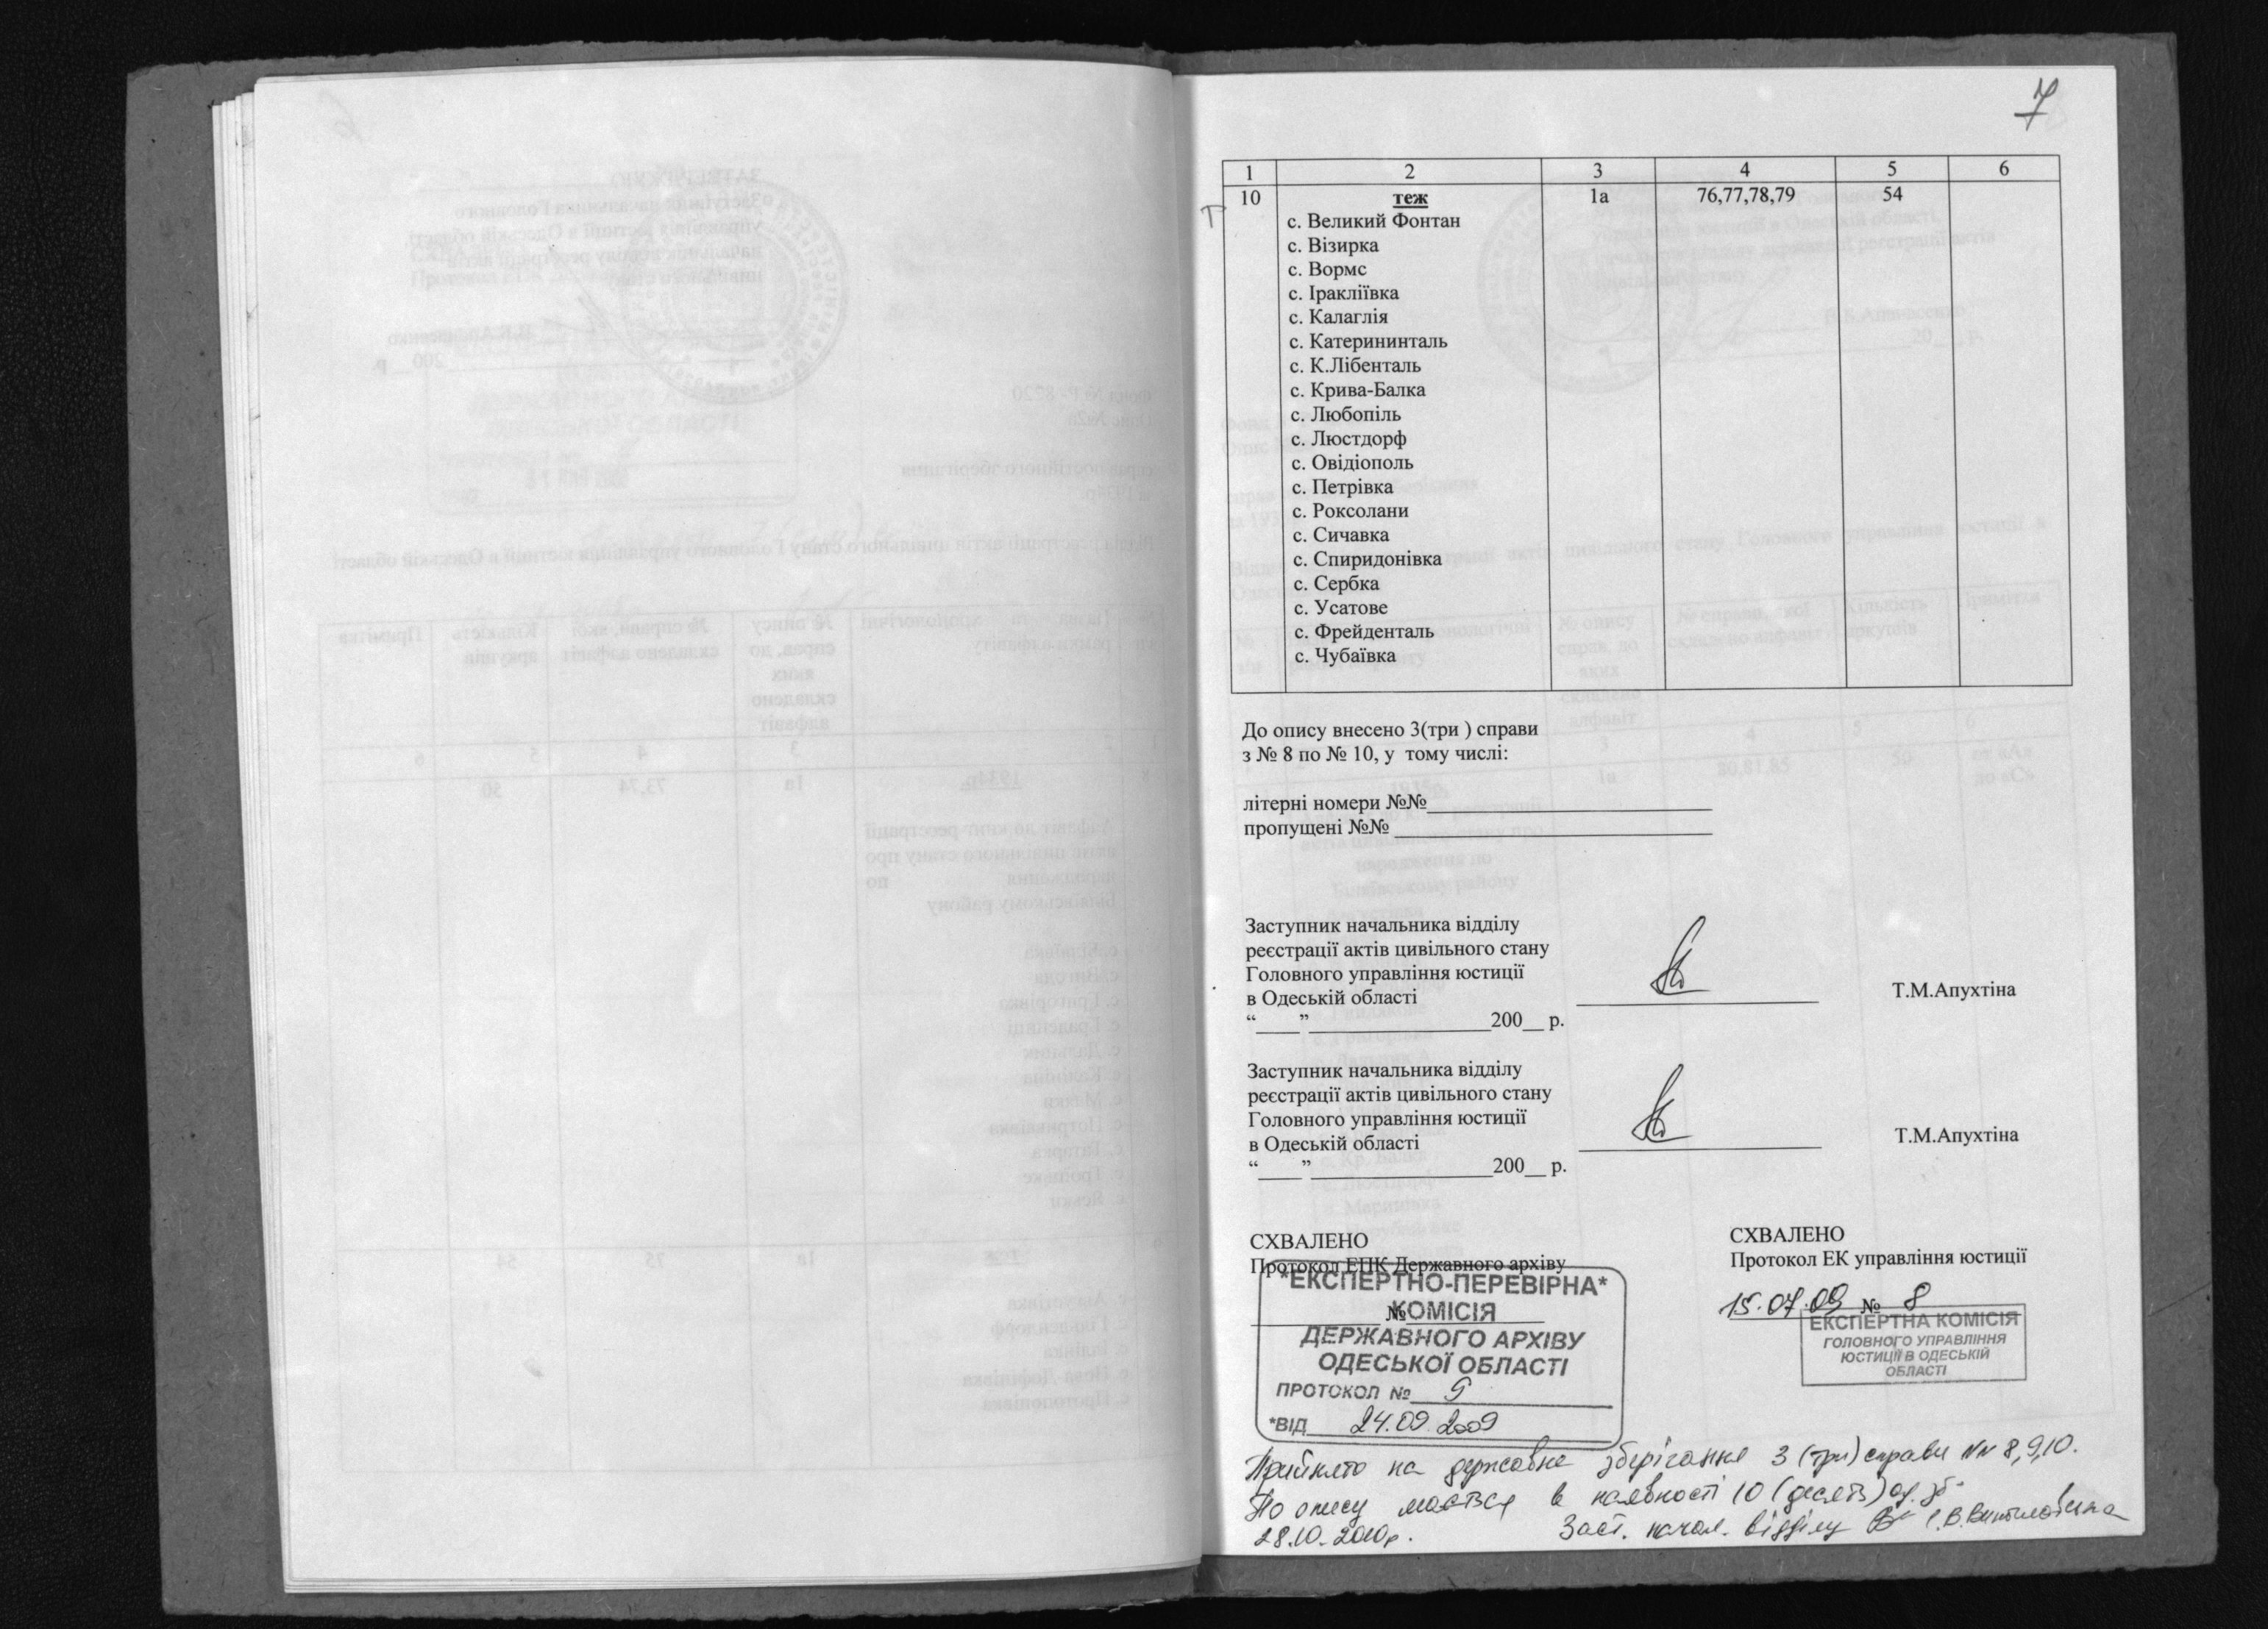 7
1 2 3 4 5 6
10 теж 1а 76,77,78,79 54
с. Великий Фонтан
с. Візирка
с. Вормс
с. Іракліївка
с. Калаглія
с. Катерининталь
с. К.Лібенталь
с. Крива-Балка
с. Любопіль
с. Люстдорф
с. Овідіополь
с. Петрівка
с. Роксолани
с. Сичавка
с. Спиридонівка
с. Сербка
с. Усатове
с. Фрейденталь
с. Чубаївка
До опису внесено 3(три ) справи
з № 8 по № 10, у тому числі:
літерні номери №№
пропущені №№
Заступник начальника відділу
реєстрації актів цивільного стану
Головного управління юстиції
в Одеській області Т.М.Апухтіна
“____”_________________200__ р.
Заступник начальника відділу
реєстрації актів цивільного стану
Головного управління юстиції
в Одеській області Т.М.Апухтіна
“____”_________________200__ р.
СХВАЛЕНО
Протокол ЕПК Державного архіву
№
*ЕКСПЕРТНО-ПЕРЕВІРНА*
КОМІСІЯ
ДЕРЖАВНОГО АРХІВУ
ОДЕСЬКОЇ ОБЛАСТІ
ПРОТОКОЛ № 9
*ВІД 24.09.2009
СХВАЛЕНО
Протокол ЕК управління юстиції
15.07.09 № 8
ЕКСПЕРТНА КОМІСІЯ
ГОЛОВНОГО УПРАВЛІННЯ
ЮСТИЦІЇ В ОДЕСЬКІЙ
ОБЛАСТІ
Прийнято на державне зберігання 3 (три) справи №№ 8,9,10.
По опису мається в наявності 10 (десять) од. зб.
28.10.2010р. Заст. начал. відділу